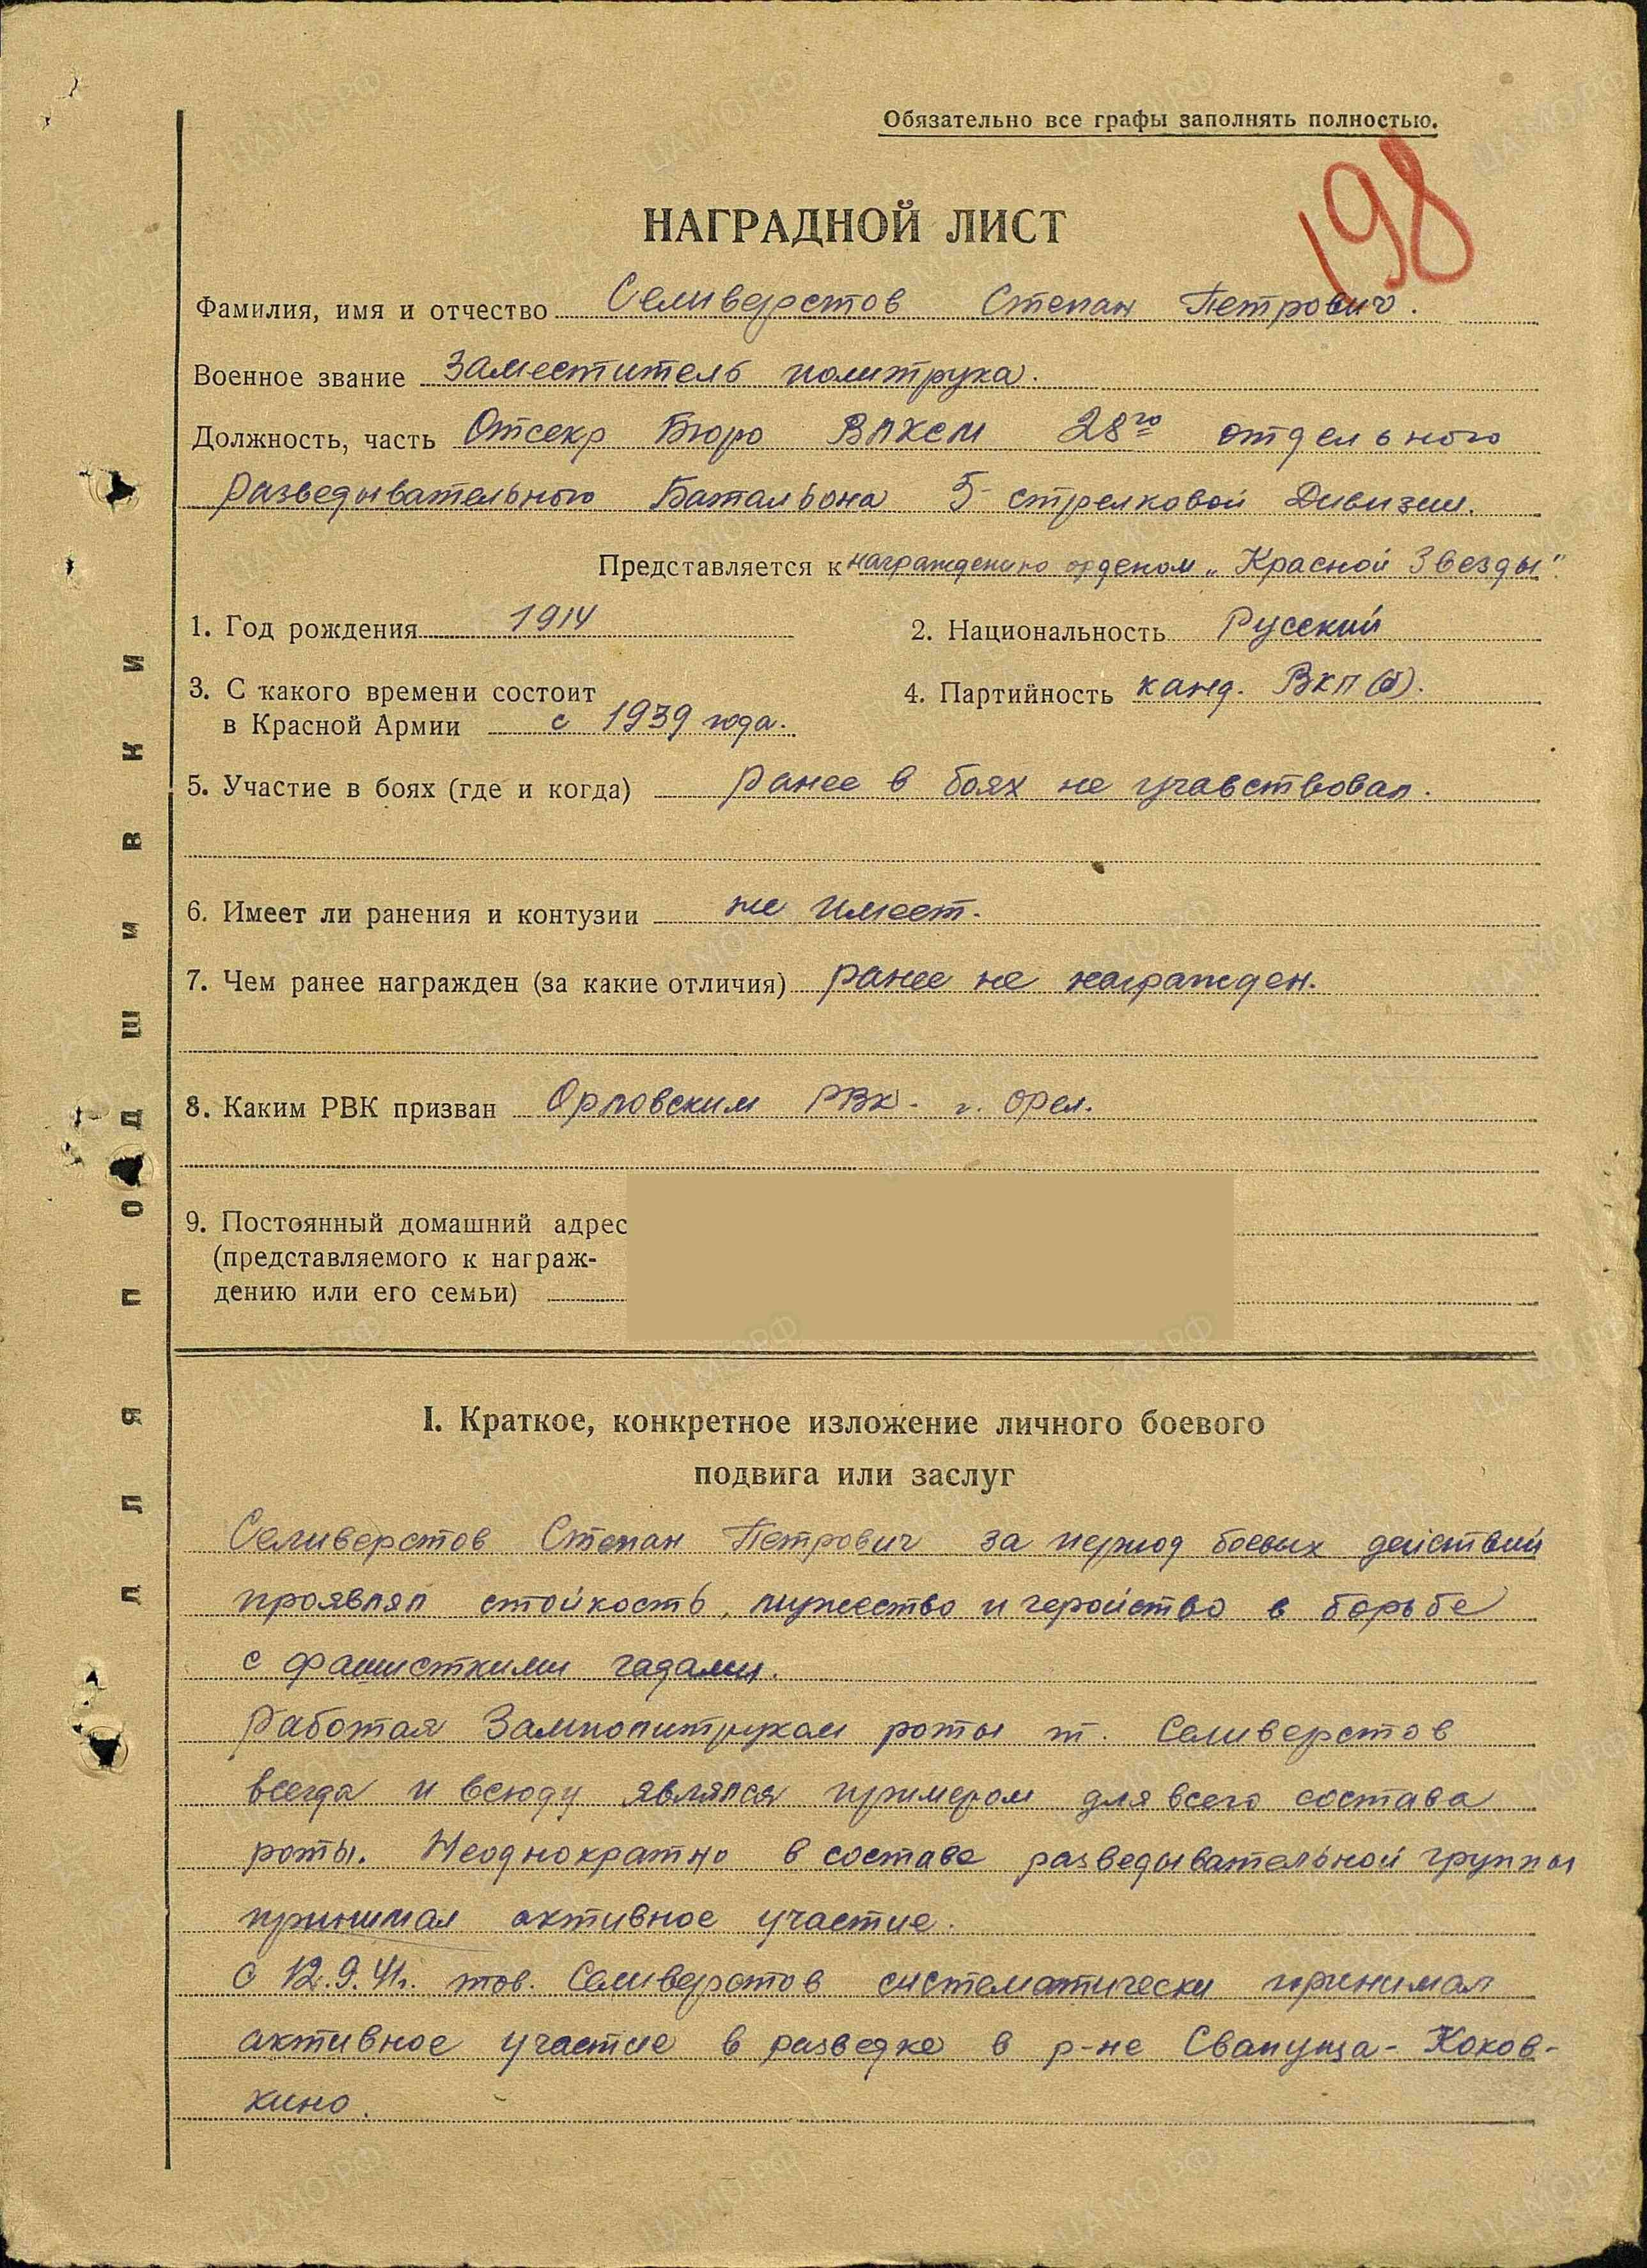 Обязательно все графы заполнять полностью.
198
НАГРАДНОЙ ЛИСТ
Фамилия, имя и отчество Селиверстов Степан Петрович.
Военное звание Заместитель политрука.
Должность, часть Отсекр Бюро ВЛКСМ 28го отдельного
Разведывательного Батальона 5 стрелковой Дивизии.
Представляется к награждению орденом „Красной Звезды".
1. Год рождения 1914
2. Национальность Русский
3. С какого времени состоит
в Красной Армии с 1939 года.
4. Партийность канд. ВКП(б).
5. Участие в боях (где и когда) Ранее в боях не учавствовал.
6. Имеет ли ранения и контузии не имеет.
7. Чем ранее награжден (за какие отличия) Ранее не награжден.
8. Каким РВК призван Орловским РВК. г. Орел.
9. Постоянный домашний адрес
(представляемого к награж-
дению или его семьи)
I. Краткое, конкретное изложение личного боевого
подвига или заслуг
Селиверстов Степан Петрович за период боевых действий
проявлял стойкость, мужество и геройство в борьбе
с фашисткими гадами.
Работая Замполитруком роты т. Селиверстов
всегда и всюду являлся примером для всего состава
роты. Неоднократно в составе разведывательной группы
принимал активное участие.
С 12.9.41г. тов. Селиверстов систематически принимал
активное участие в разведке в р-не Свапуща-Коков-
кино.
ДЛЯ ПОДШИВКИ
ЦАМО.РФ